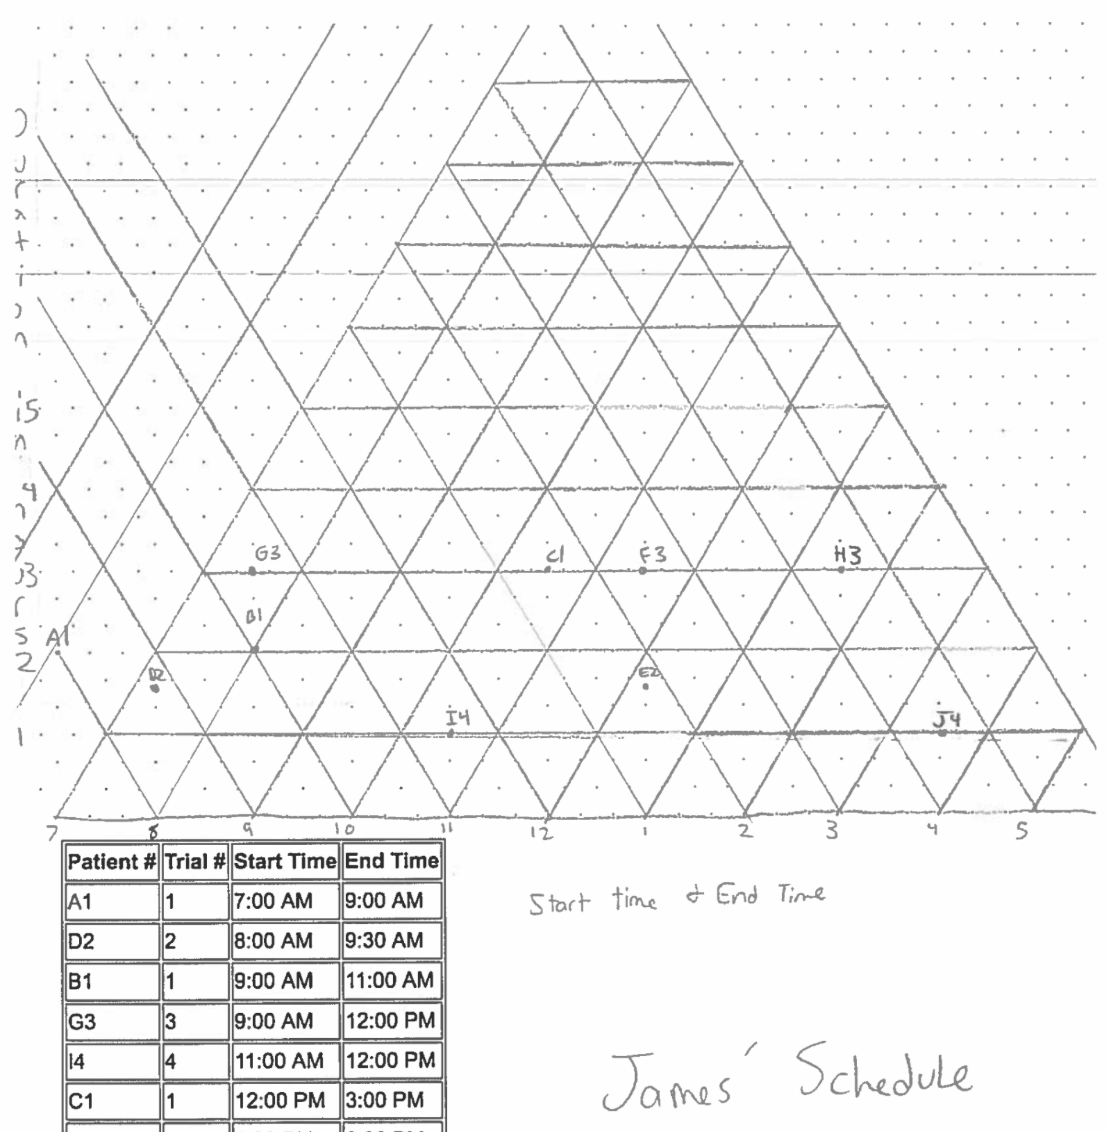 Duration
in
hours
5
4
3
2
1
G3
C1
F3
H3
B1
A1
D2
E2
I4
J4
7 8 9 10 11 12 1 2 3 4 5
Patient # Trial # Start Time End Time
A1 1 7:00 AM 9:00 AM
D2 2 8:00 AM 9:30 AM
B1 1 9:00 AM 11:00 AM
G3 3 9:00 AM 12:00 PM
I4 4 11:00 AM 12:00 PM
C1 1 12:00 PM 3:00 PM
Start time & End Time
James' Schedule